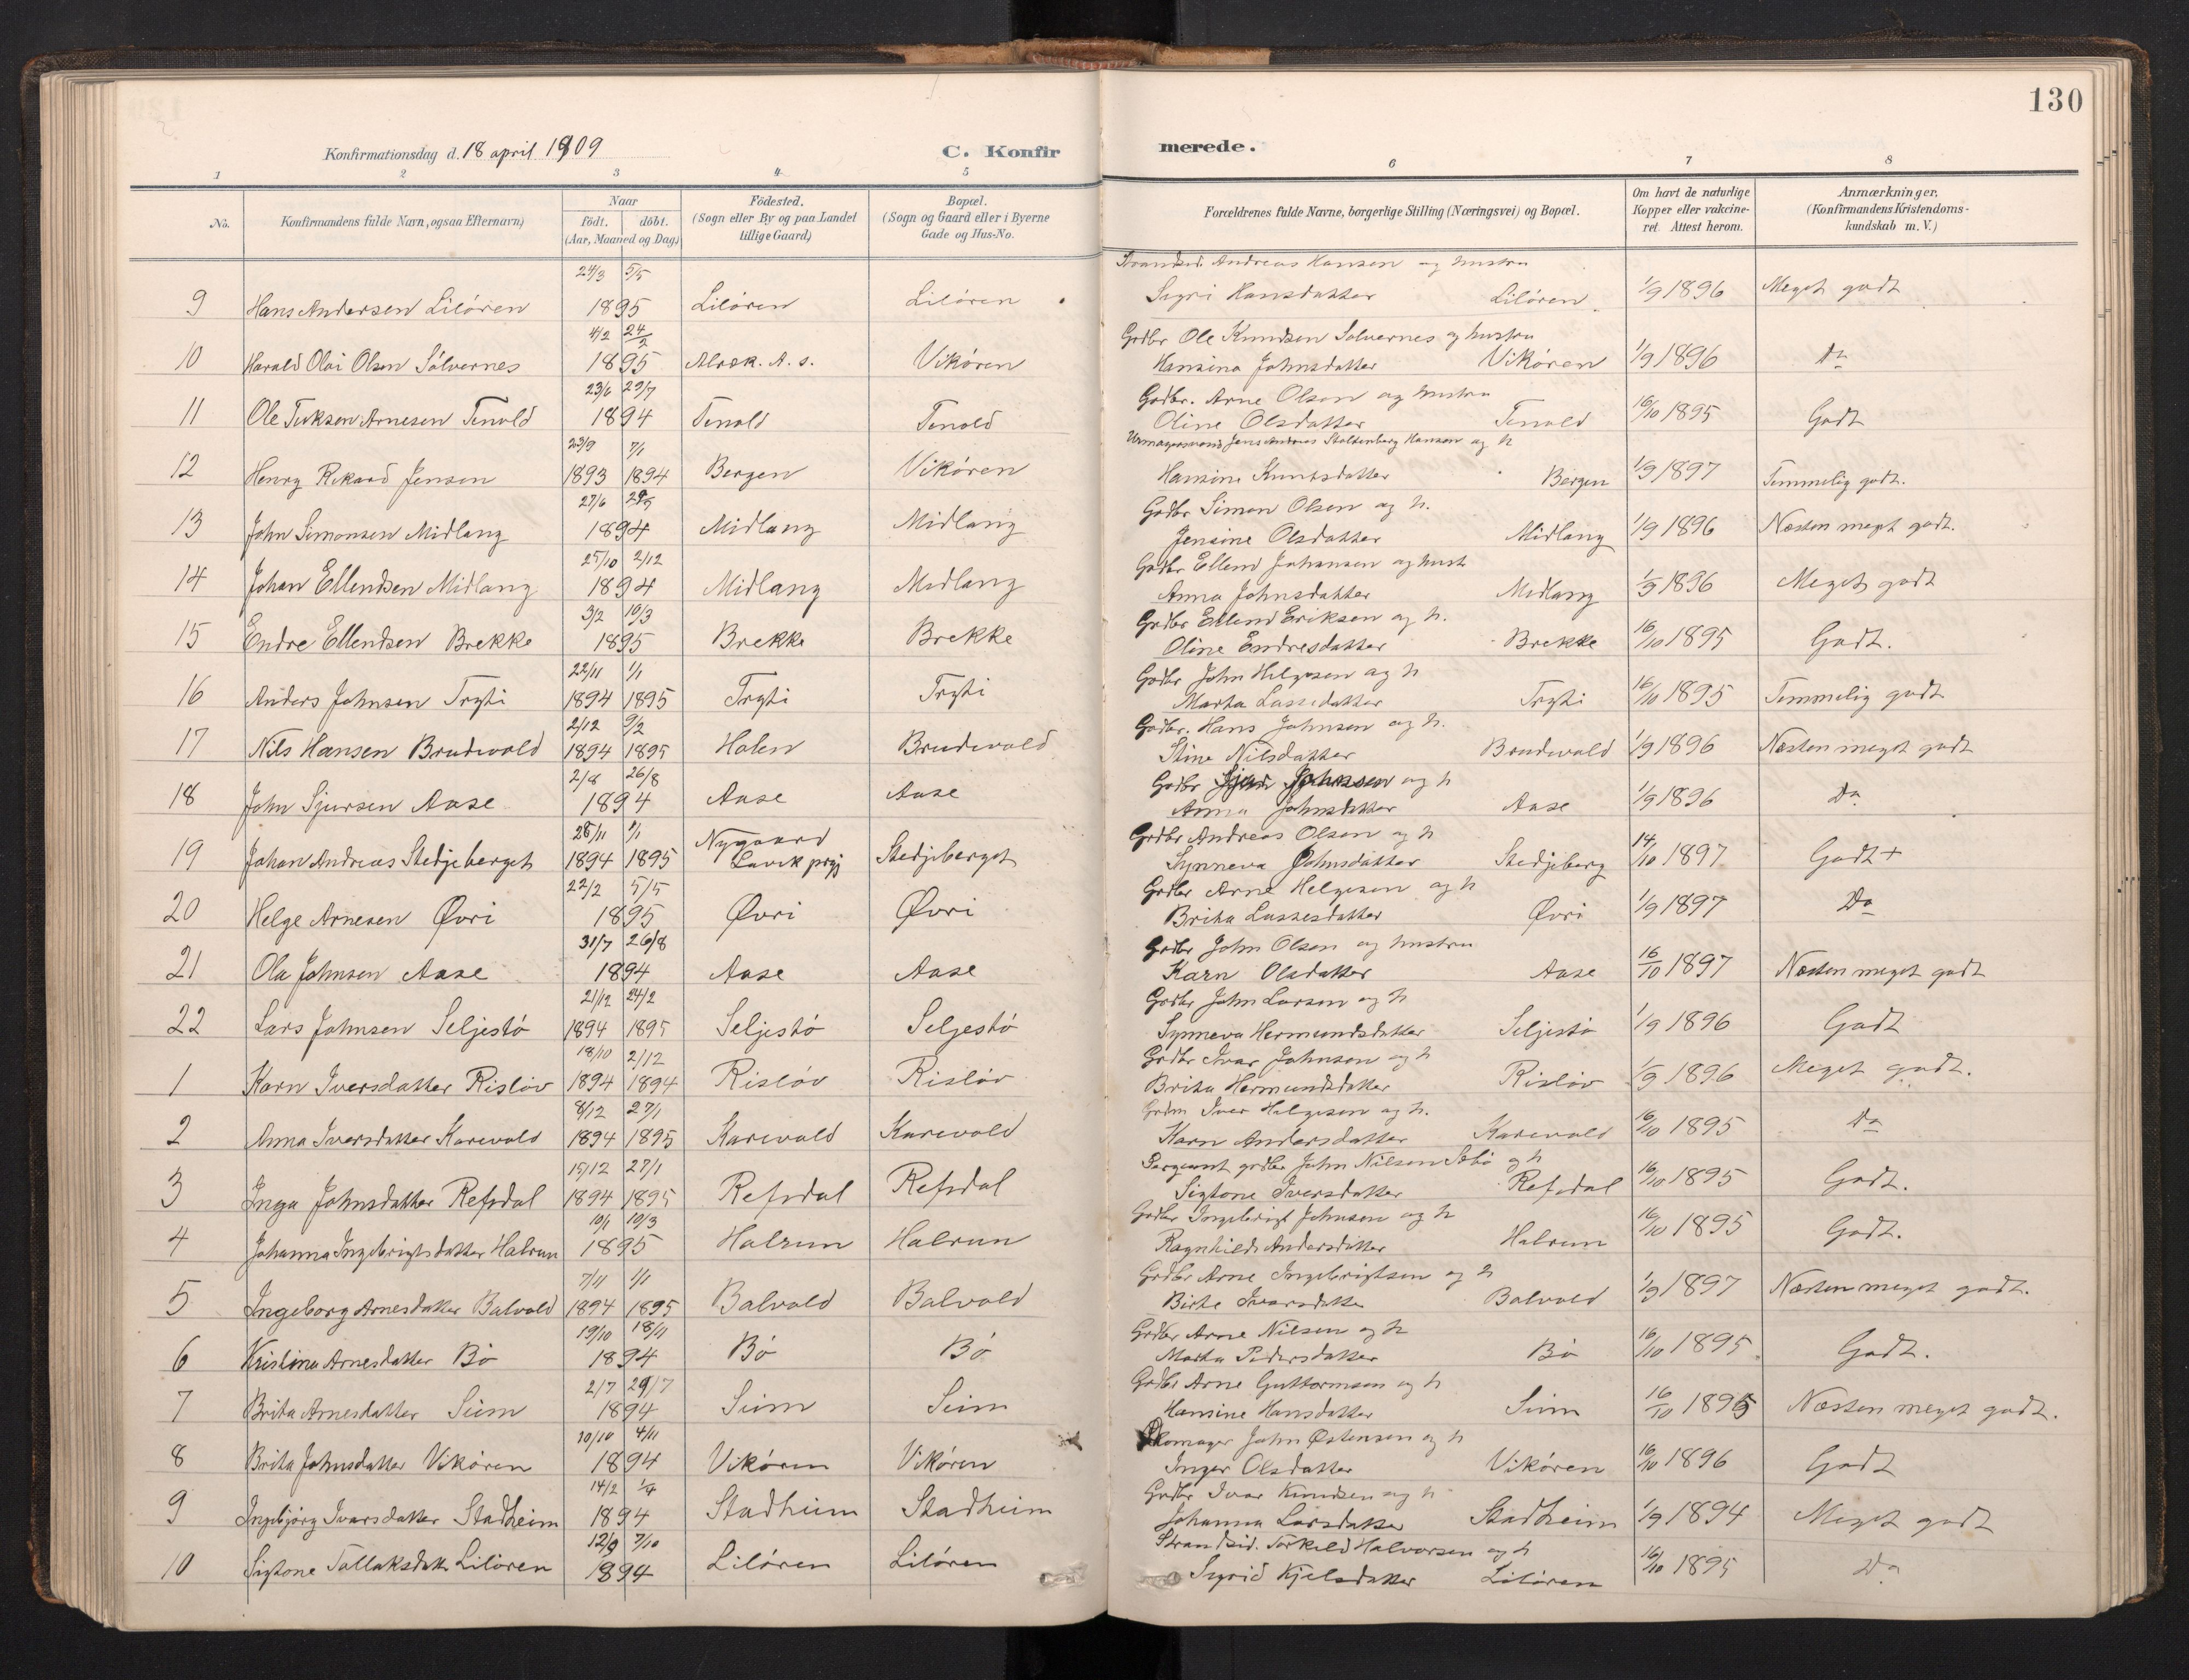 130
Konfirmationsdag d. 18 april 1909
C. Konfir merede.
1 2 3 4 5 6 7 8
No. Konfirmandens fulde Navn, ogsaa Efternavn) Naar födt. döbt. (Aar, Maaned og Dag.) Födested. (Sogn eller By og paa Landet tillige Gaard) Bopæl. (Sogn og Gaard eller i Byerne Gade og Hus-No. Forældrenes fulde Navne, borgerlige Stilling (Næringsvei) og Bopæl. Om havt de naturlige Kopper eller vakcineret. Attest herom. Anmærkninger, (Konfirmandens Kristendomskundskab m. V.)
24/3 5/5 Strandsid. Andreas Hansen og hustru
9 Hans Andersen Lilören 1895 Lilören Lilören Sygni Hansdatter Lilören 1/9 1896 Meget godt
4/2 24/2 Grdbr Ole Knudsen Solvernes og hustru
10 Harald Olai Olsen Sölvernes 1895 A. s. Vikören Hansina Johnsdatter Vikören 1/9 1896 Do
23/6 29/7 Gadbr. Arne Olsen og hustru
11 Ole Arnesen Tenold 1894 Tenold Tenold Oline Olsdatter Tenold 16/10 1895 Godt
23/9 7/1 Jens Andreas Stoltenberg Hansen og h
12 Henry Rikard Jensen 1893 1894 Bergen Vikören Hansine Knutsdatter Bergen 1/9 1897 Temmelig godt.
27/6 29/7 Gadbr Simon Olsen og h.
13 John Simonsen Midlang 1894 Midlang Midlang Jensine Olsdatter Midlang 1/9 1896 Næsten meget godt.
25/10 2/12 Gadbr Ellend Johansen og hust
14 Johan Ellendsen Midlang 1894 Midlang Midlang Anna Johnsdatter Midlang 1/9 1896 Meget godt
3/2 10/3 Grdbr Ellend Eriksen og h.
15 Endre Ellendsen Brekke 1895 Brekke Brekke Oline Endresdatter Brekke 16/10 1895 Godt.
22/11 1/1 Gadbr John Helgesen og h
16 Anders Johnsen Tryti 1894 1895 Tryti Tryti Marta Lassedatter Tryti 16/10 1895 Temmelig godt
2/12 9/2 Gadbr. Hans Johnsen og h.
17 Nils Hansen Brudevold 1894 1895 Holen Brudevold Stine Nilsdatter Brudevold 1/9 1896 Næsten meget godt
2/8 26/8 Gadbr Sjur Johnsen og h
18 John Sjursen Aase 1894 Aase Aase Anna Johnsdatter Aase 1/9 1896 Do
28/11 1/1 Nygaard Grdbr Andreas Olsen og h
19 Johan Andreas Stedjeberget 1894 1895 Lavik prgj Stedjeberget Synneva Johnsdatter Stedjeberg 14/10 1897 Godt +
22/2 5/5 Grdbr Arne Helgesen og h
20 Helge Arnesen Øvri 1895 Øvri Øvri Brita Lassesdatter Øvri 1/9 1897 Do
31/7 26/8 Grdbr John Olsen og hustru
21 Ola Johnsen Aase 1894 Aase Aase Karn Olsdatter Aase 16/10 1897 Næsten meget godt
21/12 24/2 Grdbr John Larsen og h
22 Lars Johnsen Seljestö 1894 1895 Seljestö Seljestö Synneva Hermundsdatter Seljestö 1/9 1896 Godt
18/10 2/12 Grdbr Ivar Johnsen og h
1 Karn Iversdatter Rislöv 1894 1894 Rislöv Rislöv Brita Hermundsdatter Rislöv 1/9 1896 Meget godt.
8/12 27/1 Grdm Iver Helgesen og h.
2 Anna Iversdatter Karevold 1894 1895 Karevold Karevold Karn Andersdatter Karevold 16/10 1895 Do
15/12 27/1 Sergeant grdbr John Nilsen Sebö og h
3 Inga Johnsdatter Refsdal 1894 1895 Refsdal Refsdal Sigtone Iversdatter Refsdal 16/10 1895 Godt.
10/1 10/3 Gadbr Ingebrigt Johnsen og h
4 Johanna Ingebrigtsdatter Halrun 1895 Halrun Halrun Ragnhild Andersdatter Halrun 16/10 1895 Godt.
7/11 1/1 Grdbr Arne Ingebrigtsen og h
5 Ingeborg Arnesdatter Balvold 1894 1895 Balvold Balvold Birte Ivarsdatter Balvold 1/9 1897 Næsten meget godt.
19/10 18/11 Grdbr Arne Nilsen og h
6 Kristina Arnesdatter Bö 1894 Bö Bö Marta Pedersdatter Bö 16/10 1895 Godt.
2/7 29/7 Grdbr Arne Guttormsen og h
7 Brita Arnesdatter Seim 1894 Seim Seim Hansine Hansdatter Seim 16/10 1895 Næsten meget godt.
20/10 4/11 Skomager John Østensen og h
8 Brita Johnsdatter Vikören 1894 Vikören Vikören Inger Olsdatter Vikören 16/10 1896 Godt
14/2 1/4 Grdbr Ivar Knudsen og h
9 Ingebjörg Ivarsdatter Stadheim 1894 Stadheim Stadheim Johanna Larsdatter Stadheim 1/9 1894 Meget godt
12/9 7/10 Strandsid. Torkild Halvorsen og h
10 Sigtone Tollaksdatter Lilören 1894 Lilören Lilören Sigrid Kjelsdatter Lilören 16/10 1895 Do